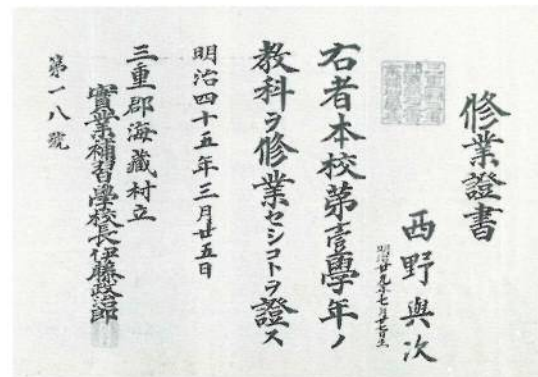 修業證書
西野與次
右者本校第壹學年ノ
教科ヲ修業セシコトヲ證ス
明治四十五年三月廿五日
三重郡海藏村立
實業補習學校長伊藤政治郎
第一八號